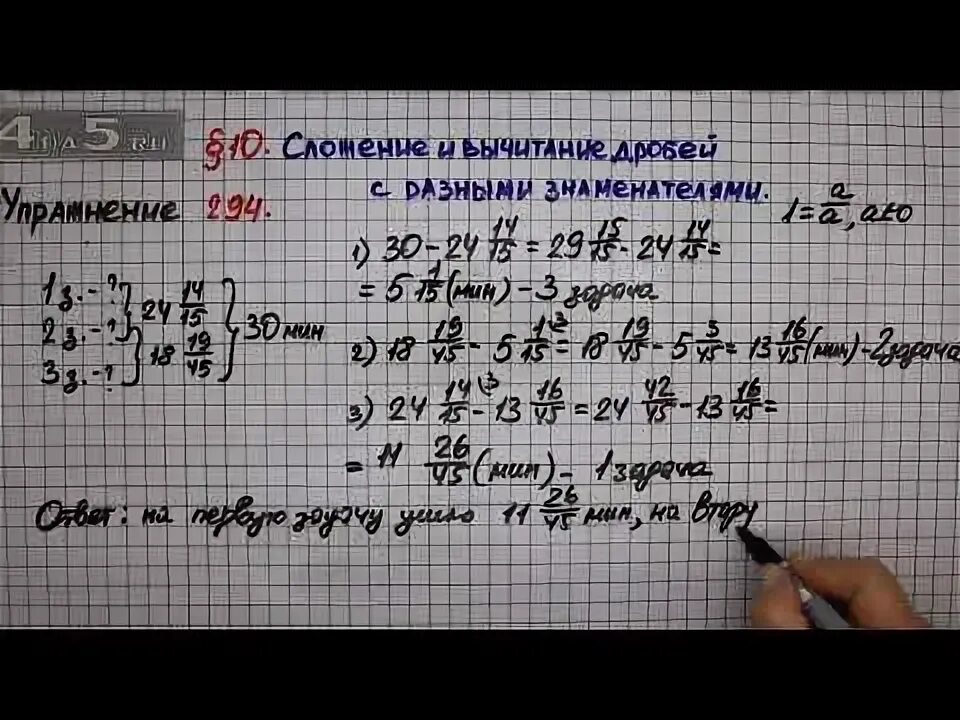 4 на 5.ru
§10. Сложение и вычитание дробей
с разными знаменателями.
Упражнение 294.
1 = a/a, a≠0
1 з. - ?
2 з. - ?
3 з. - ?
24 14/15
18 19/45
30 мин
1) 30 - 24 14/15 = 29 15/15 - 24 14/15 =
= 5 1/15 (мин) - 3 задача
2) 18 19/45 - 5 1/15 \3 = 18 19/45 - 5 3/45 = 13 16/45 (мин) - 2 задача
3) 24 14/15 \3 - 13 16/45 = 24 42/45 - 13 16/45 =
= 11 26/45 (мин) - 1 задача
Ответ: на первую задачу ушло 11 26/45 мин, на втору